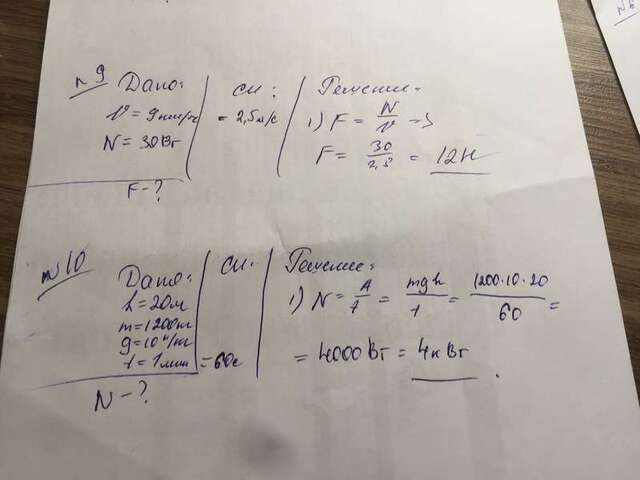 n 9 Дано: СИ: Решение:
V = 9 км/ч = 2,5 м/с 1) F = N/V →
N = 30 Вт F = 30/2,5 = 12 Н
F - ?
n 10 Дано: СИ: Решение:
h = 20 м 1) N = A/t = mgh/t = 1200·10·20/60 =
m = 1200 кг = 4000 Вт = 4 кВт
g = 10 Н/кг
t = 1 мин = 60 с
N - ?